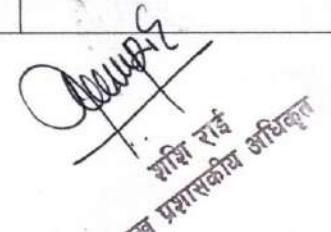 शशि राई
प्रशासकीय अधिकृत